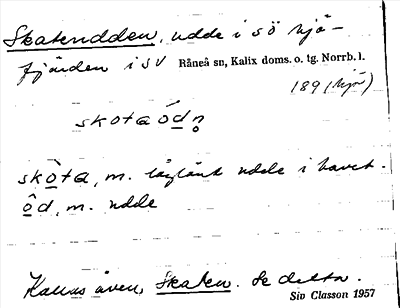 Skatudden, udde i sö hjä-
fjärden i sv Råneå sn, Kalix doms. o. tg. Norrb. l.
189 (hjä)
skota ód
skò̱ta, m. låglänt udde i havet.
ôd, m. udde
Kallas även, Skaten. Se detta.
Siv Classon 1957